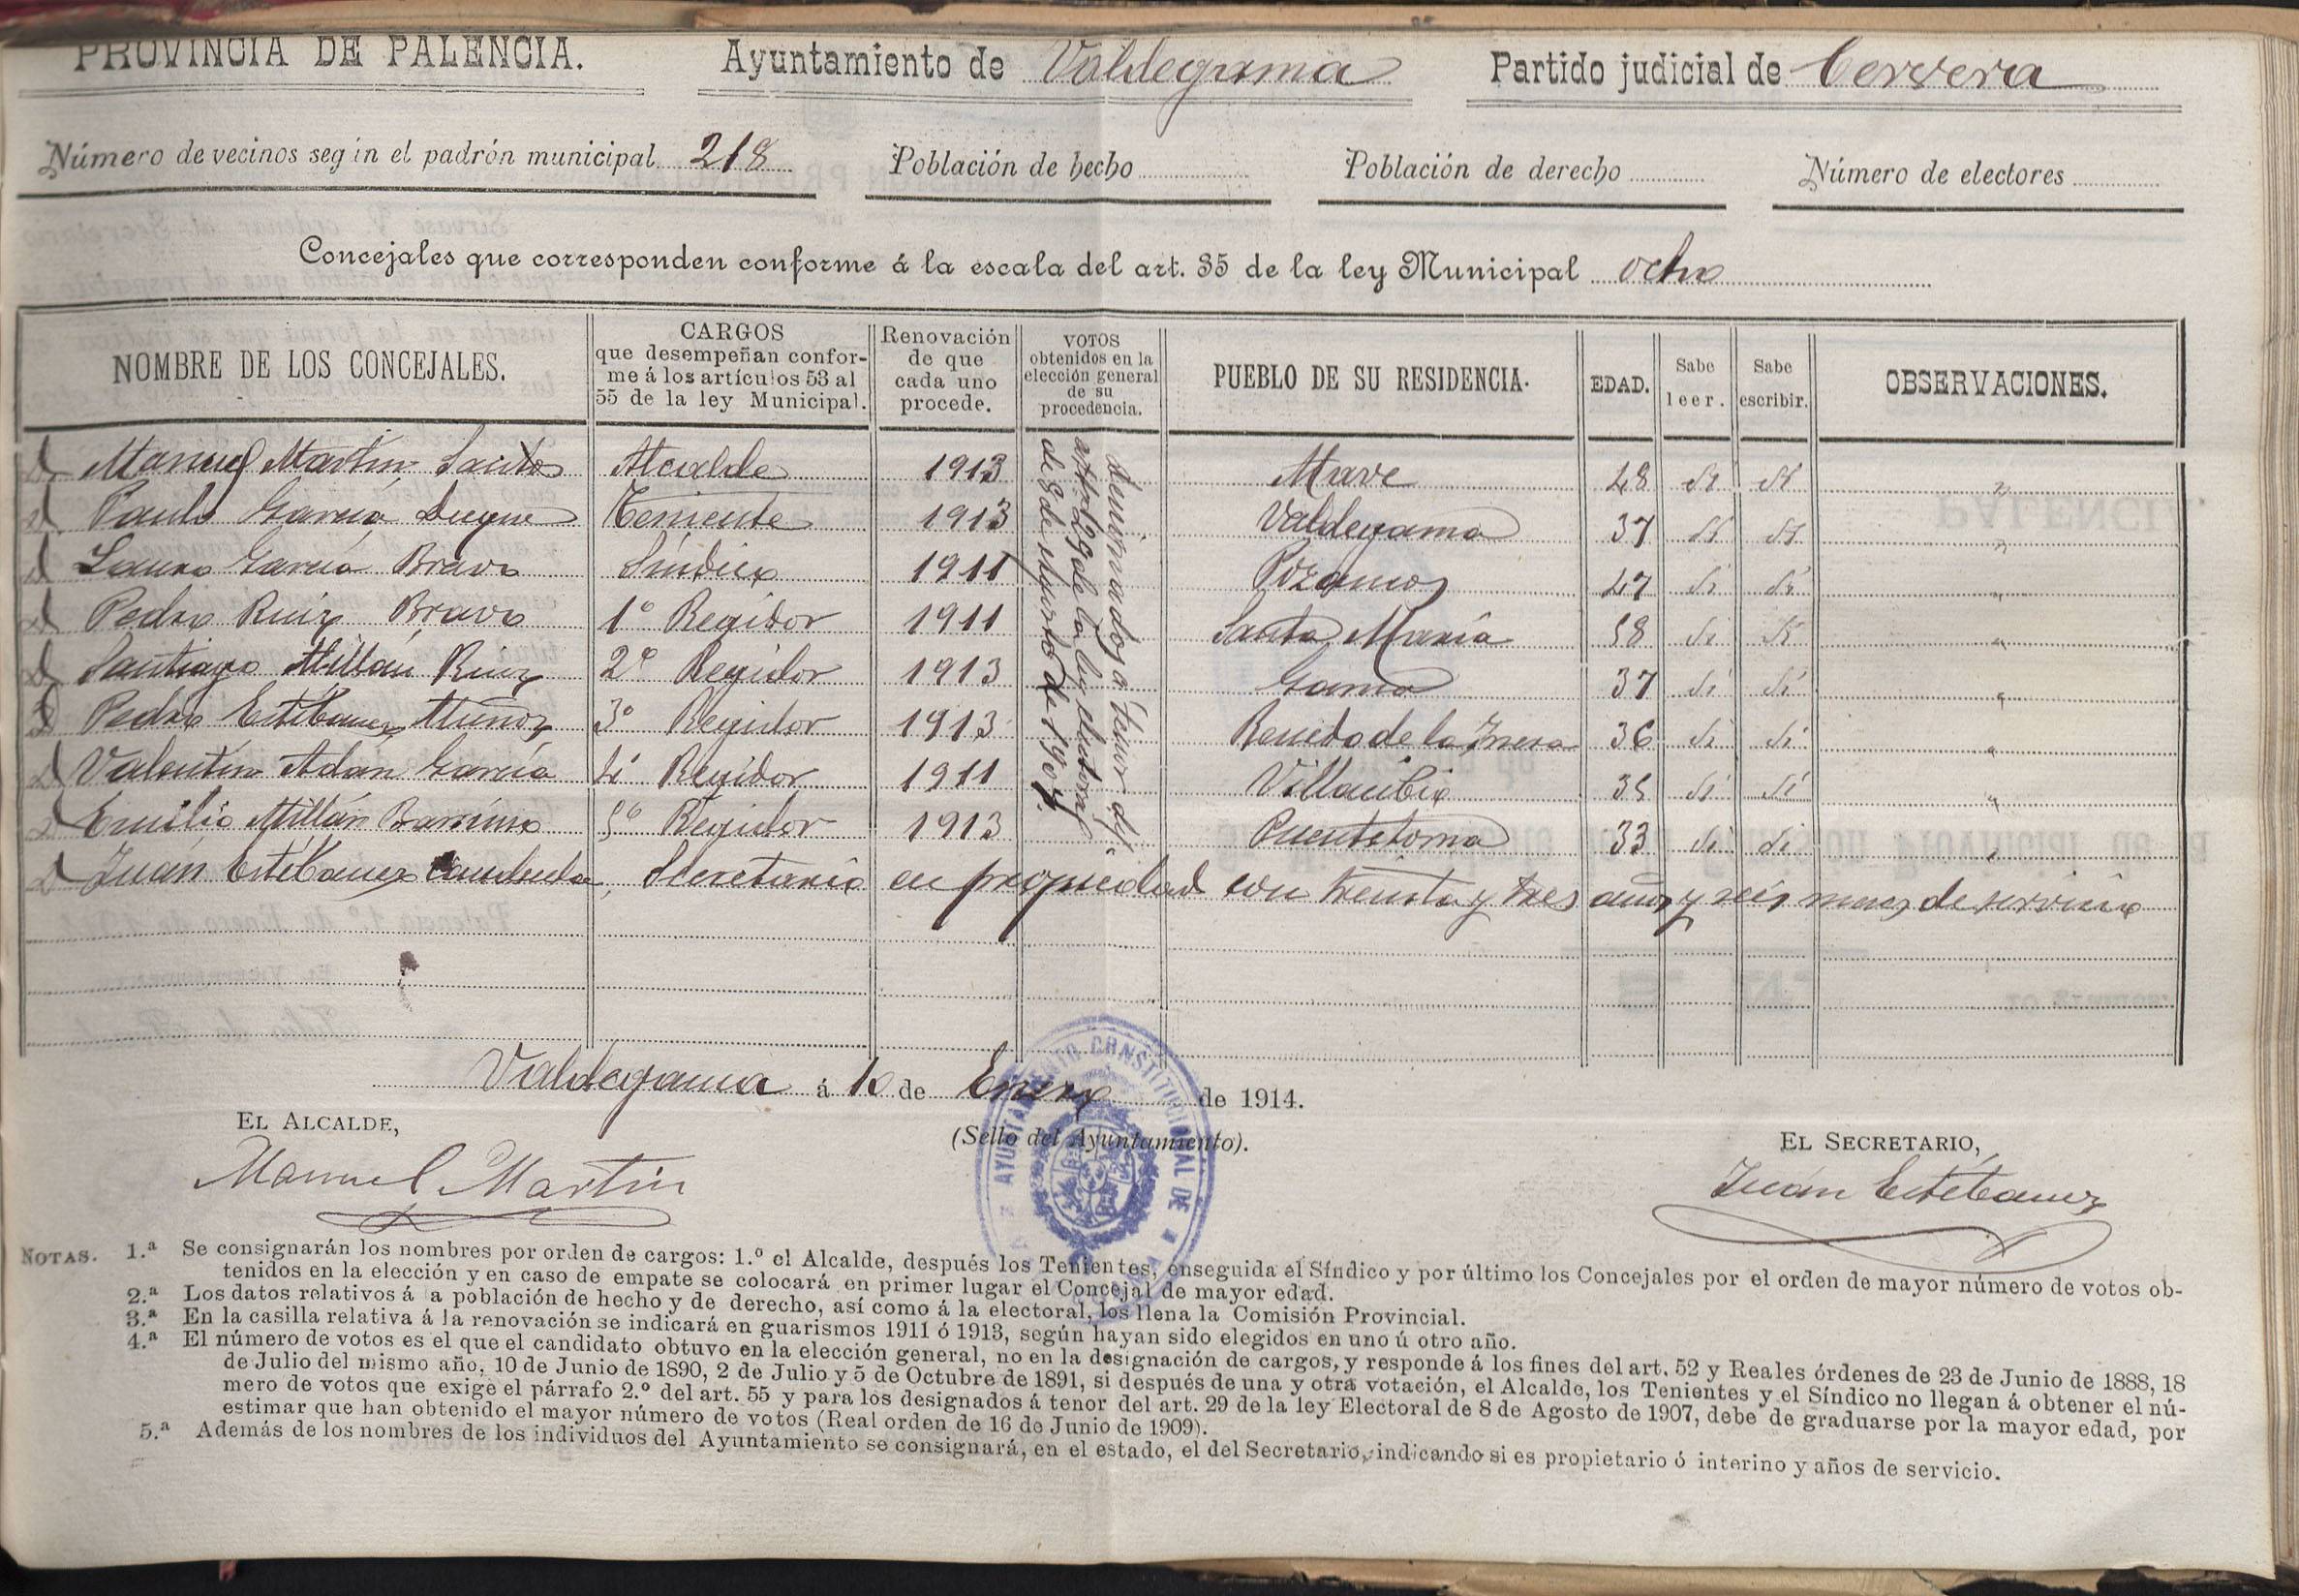 PROVINCIA DE PALENCIA. Ayuntamiento de Valdegama Partido judicial de Cervera
Número de vecinos seg ín el padrón municipal 218 Población de hecho Población de derecho Número de electores
Concejales que corresponden conforme á la escala del art. 35 de la ley Municipal ocho
NOMBRE DE LOS CONCEJALES.
CARGOS
que desempeñan confor-
me á los artículos 53 al
55 de la ley Municipal.
Renovación
de que
cada uno
procede.
VOTOS
obtenidos en la
elección general
de su
procedencia.
PUEBLO DE SU RESIDENCIA.
EDAD.
Sabe
leer.
Sabe
escribir.
OBSERVACIONES.
D Manuel Martín Santos Alcalde 1913 Mave 48 Si Si "
D Paulo García Duque Teniente 1913 Valdegama 37 Si Si "
D Lauro García Bravo Síndico 1911 Pozancos 47 Si Si "
D Pedro Ruiz Bravo 1º Regidor 1911 Santa María 58 Si Si "
D Santiago Millán Ruiz 2º Regidor 1913 Gama 37 Si Si "
D Pedro Estébanez Muñoz 3º Regidor 1913 Renedo de la Inera 36 Si Si "
D Valentín Adán García 4º Regidor 1911 Villacibio 35 Si Si "
D Emilio Millán Barrino 5º Regidor 1913 Puentetoma 33 Si Si "
D Juán Estébanez Secretario en propiedad con treinta y tres años y seis meses de servicio
Denominados a tenor del
artº 29 de la ley electoral
de 8 de Agosto de 1907.
Valdegama á 10 de Enero de 1914.
EL ALCALDE,
Manuel Martin
(Sello del Ayuntamiento).
AYUNTAMIENTO CONSTITUCIONAL DE
EL SECRETARIO,
Juán Estébanez
NOTAS. 1.ª Se consignarán los nombres por orden de cargos: 1.º el Alcalde, después los Tenientes, enseguida el Síndico y por último los Concejales por el orden de mayor número de votos ob-
tenidos en la elección y en caso de empate se colocará en primer lugar el Concejal de mayor edad.
2.ª Los datos relativos á la población de hecho y de derecho, así como á la electoral, los llena la Comisión Provincial.
3.ª En la casilla relativa á la renovación se indicará en guarismos 1911 ó 1913, según hayan sido elegidos en uno ú otro año.
4.ª El número de votos es el que el candidato obtuvo en la elección general, no en la designación de cargos, y responde á los fines del art. 52 y Reales órdenes de 23 de Junio de 1888, 18
de Julio del mismo año, 10 de Junio de 1890, 2 de Julio y 5 de Octubre de 1891, si después de una y otra votación, el Alcalde, los Tenientes y el Síndico no llegan á obtener el nú-
mero de votos que exige el párrafo 2.º del art. 55 y para los designados á tenor del art. 29 de la ley Electoral de 8 de Agosto de 1907, debe de graduarse por la mayor edad, por
estimar que han obtenido el mayor número de votos (Real orden de 16 de Junio de 1909).
5.ª Además de los nombres de los individuos del Ayuntamiento se consignará, en el estado, el del Secretario, indicando si es propietario ó interino y años de servicio.